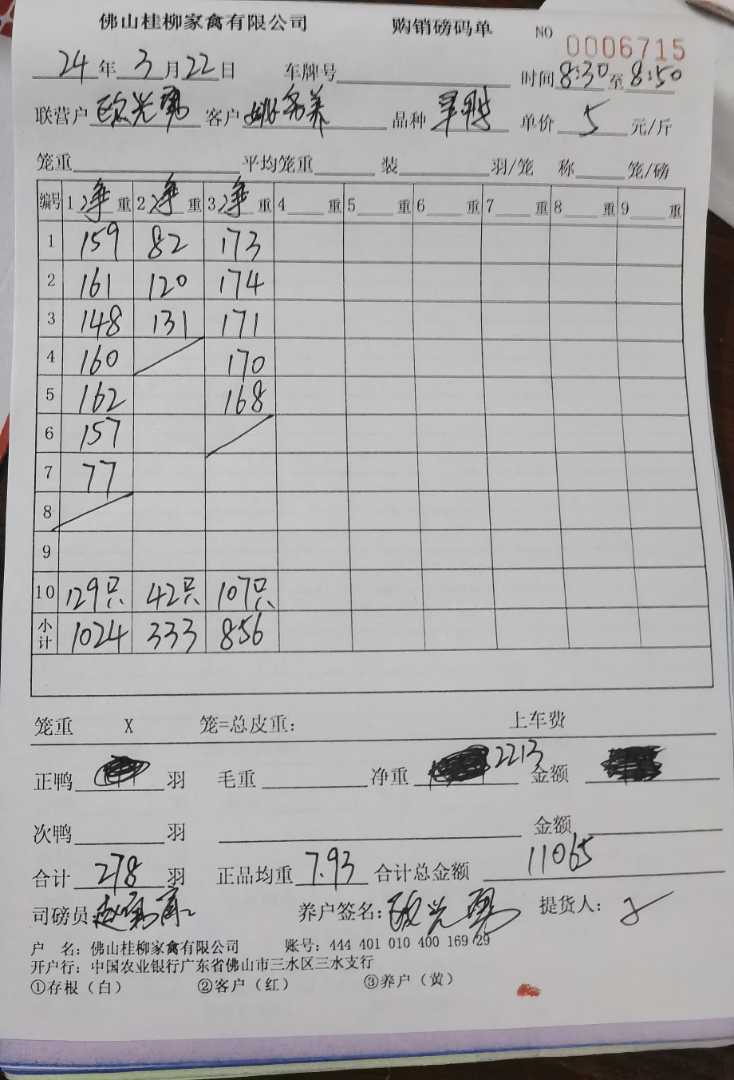 佛山桂柳家禽有限公司 购销磅码单 NO 0006715
24年3月22日 车牌号 时间8:30至8:50
联营户 欧光勇 客户 姚 养 品种 单价 5 元/斤
笼重 平均笼重 装 羽/笼 称 笼/磅
编号 1净重 2净重 3净重 4重 5重 6重 7重 8重 9重
1 159 82 173
2 161 120 174
3 148 131 171
4 160 170
5 162 168
6 157
7 77
8
9
10 129只 42只 107只
小计 1024 333 856
笼重 X 笼=总皮重: 上车费
正鸭 羽 毛重 净重 2213 金额
次鸭 羽 金额
合计 278 羽 正品均重 7.93 合计总金额 11065
司磅员 赵 养户签名: 欧光勇 提货人:
户 名: 佛山桂柳家禽有限公司 账号: 444 401 010 400 169 29
开户行: 中国农业银行广东省佛山市三水区三水支行
①存根(白) ②客户(红) ③养户(黄)